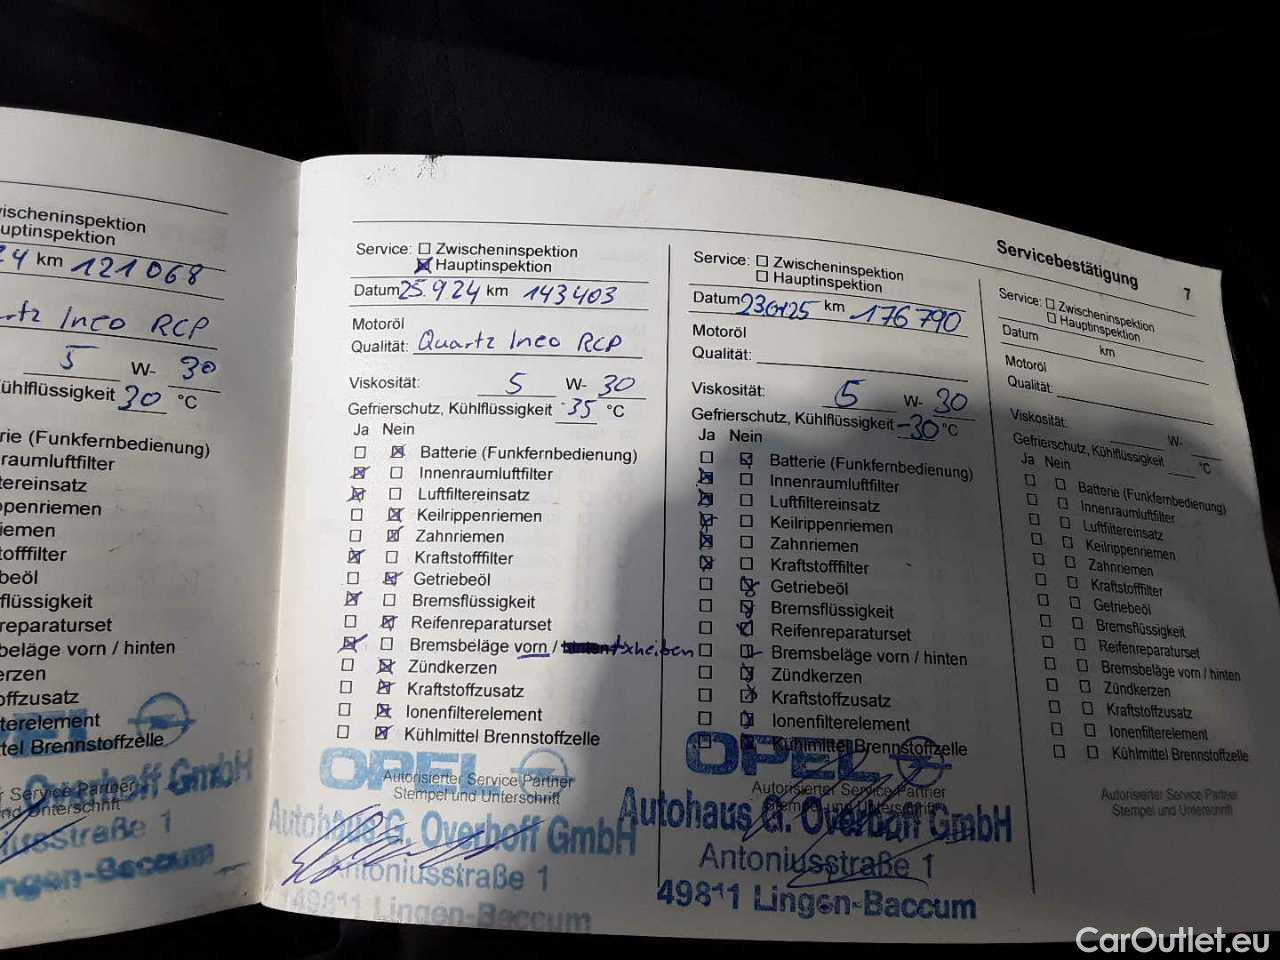 Servicebestätigung 7
wischeninspektion
uptinspektion
24 km 121 068
rtz Ineo RCP
5 W- 30
ühlflüssigkeit 30 °C
rie (Funkfernbedienung)
raumluftfilter
ltereinsatz
ppenriemen
iemen
tofffilter
beöl
flüssigkeit
reparaturset
beläge vorn / hinten
erzen
offzusatz
lterelement
tel Brennstoffzelle
OPEL
r Service Partner
nd Unterschrift
Overhoff GmbH
iusstraße 1
ngen-Baccum
Service: Zwischeninspektion
Hauptinspektion
Datum 25.9.24 km 143 403
Motoröl
Qualität: Quartz Ineo RCP
Viskosität: 5 W- 30
Gefrierschutz, Kühlflüssigkeit -35 °C
Ja Nein
Batterie (Funkfernbedienung)
Innenraumluftfilter
Luftfiltereinsatz
Keilrippenriemen
Zahnriemen
Kraftstofffilter
Getriebeöl
Bremsflüssigkeit
Reifenreparaturset
Bremsbeläge vorn / hinten
Zündkerzen
Kraftstoffzusatz
Ionenfilterelement
Kühlmittel Brennstoffzelle
OPEL
Autorisierter Service Partner
Stempel und Unterschrift
Autohaus G. Overhoff GmbH
Antoniusstraße 1
49811 Lingen-Baccum
Service: Zwischeninspektion
Hauptinspektion
Datum km 176 790
Motoröl
Qualität:
Viskosität: 5 W- 30
Gefrierschutz, Kühlflüssigkeit -30 °C
Ja Nein
Batterie (Funkfernbedienung)
Innenraumluftfilter
Luftfiltereinsatz
Keilrippenriemen
Zahnriemen
Kraftstofffilter
Getriebeöl
Bremsflüssigkeit
Reifenreparaturset
Bremsbeläge vorn / hinten
Zündkerzen
Kraftstoffzusatz
Ionenfilterelement
Kühlmittel Brennstoffzelle
OPEL
Autorisierter Service Partner
Stempel und Unterschrift
Autohaus G. Overhoff GmbH
Antoniusstraße 1
49811 Lingen-Baccum
Service: Zwischeninspektion
Hauptinspektion
Datum km
Motoröl
Qualität:
Viskosität: W-
Gefrierschutz, Kühlflüssigkeit °C
Ja Nein
Batterie (Funkfernbedienung)
Innenraumluftfilter
Luftfiltereinsatz
Keilrippenriemen
Zahnriemen
Kraftstofffilter
Getriebeöl
Bremsflüssigkeit
Reifenreparaturset
Bremsbeläge vorn / hinten
Zündkerzen
Kraftstoffzusatz
Ionenfilterelement
Kühlmittel Brennstoffzelle
Autorisierter Service Partner
Stempel und Unterschrift
CarOutlet.eu